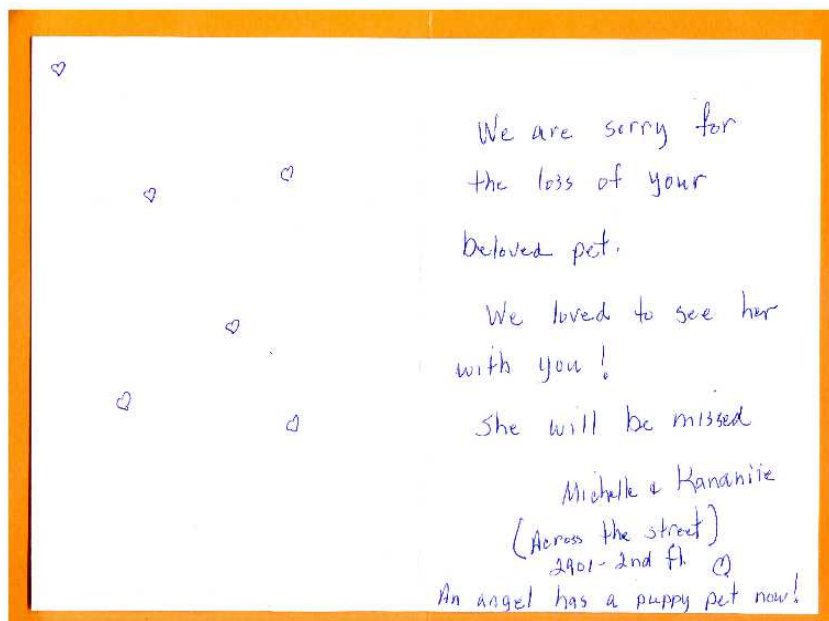 We are sorry for
the loss of your
beloved pet.
We loved to see her
with you!
She will be missed
Michelle & Kananiie
(Across the street)
2901 - 2nd fl.
An angel has a puppy pet now!